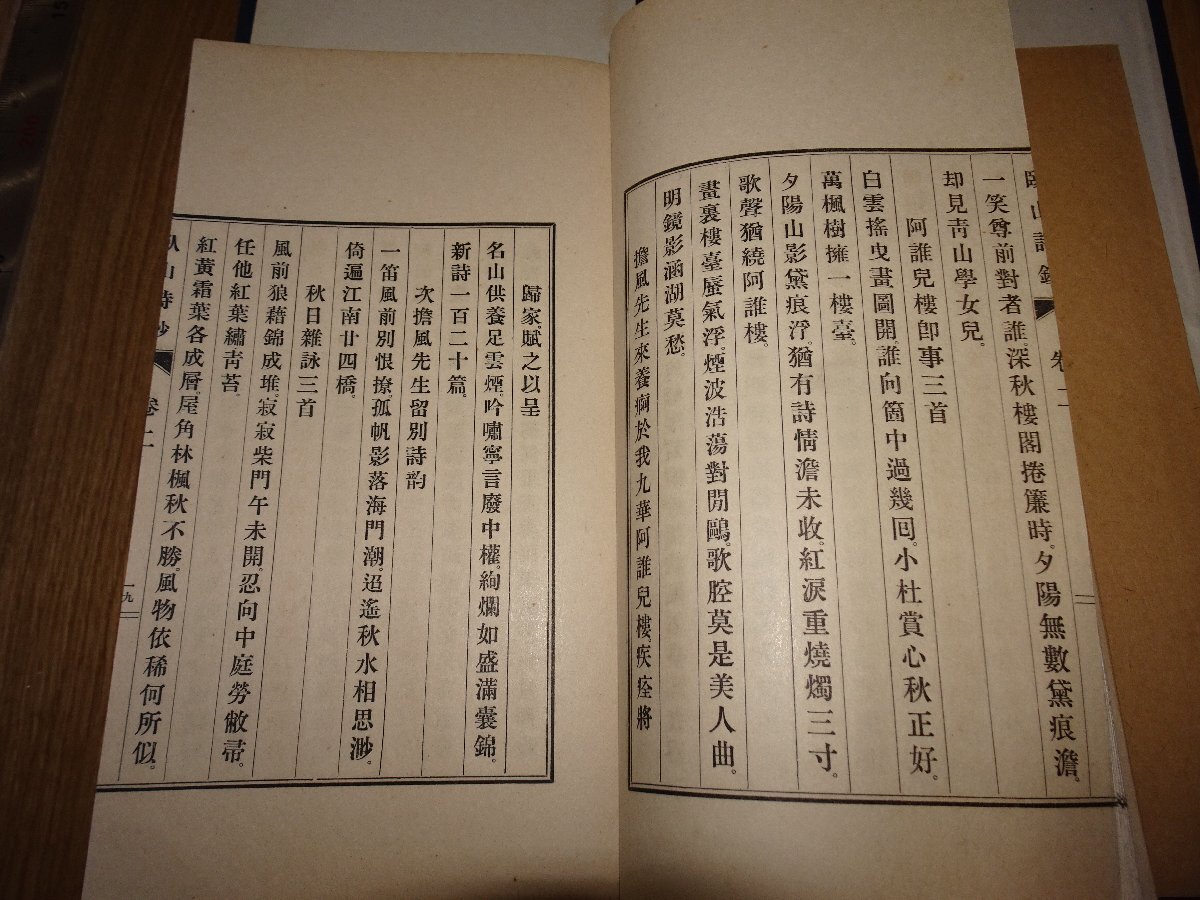 一笑尊前對者誰。深秋樓閣捲簾時。夕陽無數黛痕澹。
却見靑山學女兒。
阿誰兒樓卽事三首
白雲搖曳畫圖開。誰向箇中過幾回。小杜賞心秋正好。
萬楓樹擁一樓臺。
夕陽山影黛痕浮。猶有詩情澹未收。紅淚重燒燭三寸。
歌聲猶繞阿誰樓。
畫裏樓臺蜃氣浮。煙波浩蕩對閒鷗。歌腔莫是美人曲。
明鏡影涵湖莫愁。
擔風先生來養痾於我九華阿誰兒樓。疾痊將
歸家。賦之以呈
名山供養足雲煙。吟嘯寧言廢中權。絢爛如盛滿囊錦。
新詩一百二十篇。
次擔風先生留別詩韵
一笛風前別恨撩。孤帆影落海門潮。迢遙秋水相思渺。
倚遍江南廿四橋。
秋日雜詠三首
風前狼藉錦成堆。寂寂柴門午未開。忍向中庭勞敝帚。
任他紅葉繡靑苔。
紅黃霜葉各成層。屋角林楓秋不勝。風物依稀何所似。
卷二
一九